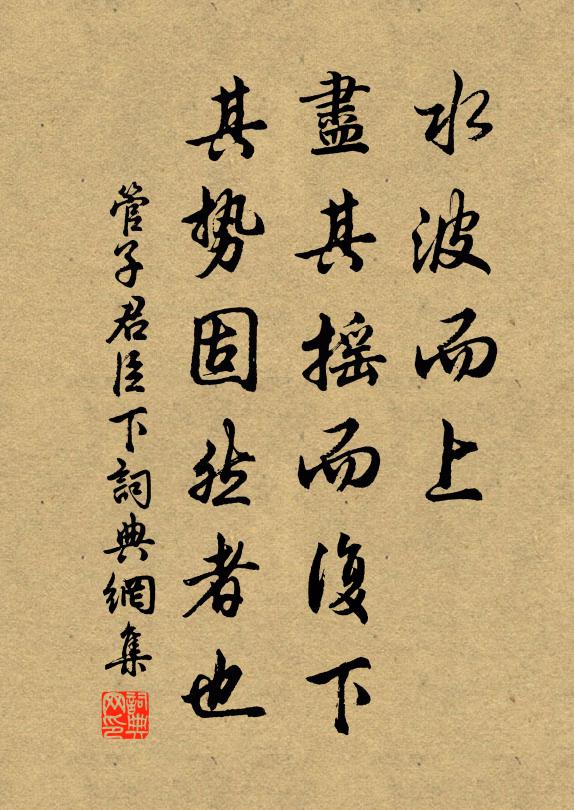 水波而上
盡其摇而復下
其势固然者也
管子君臣下詞典網集
詞典网印